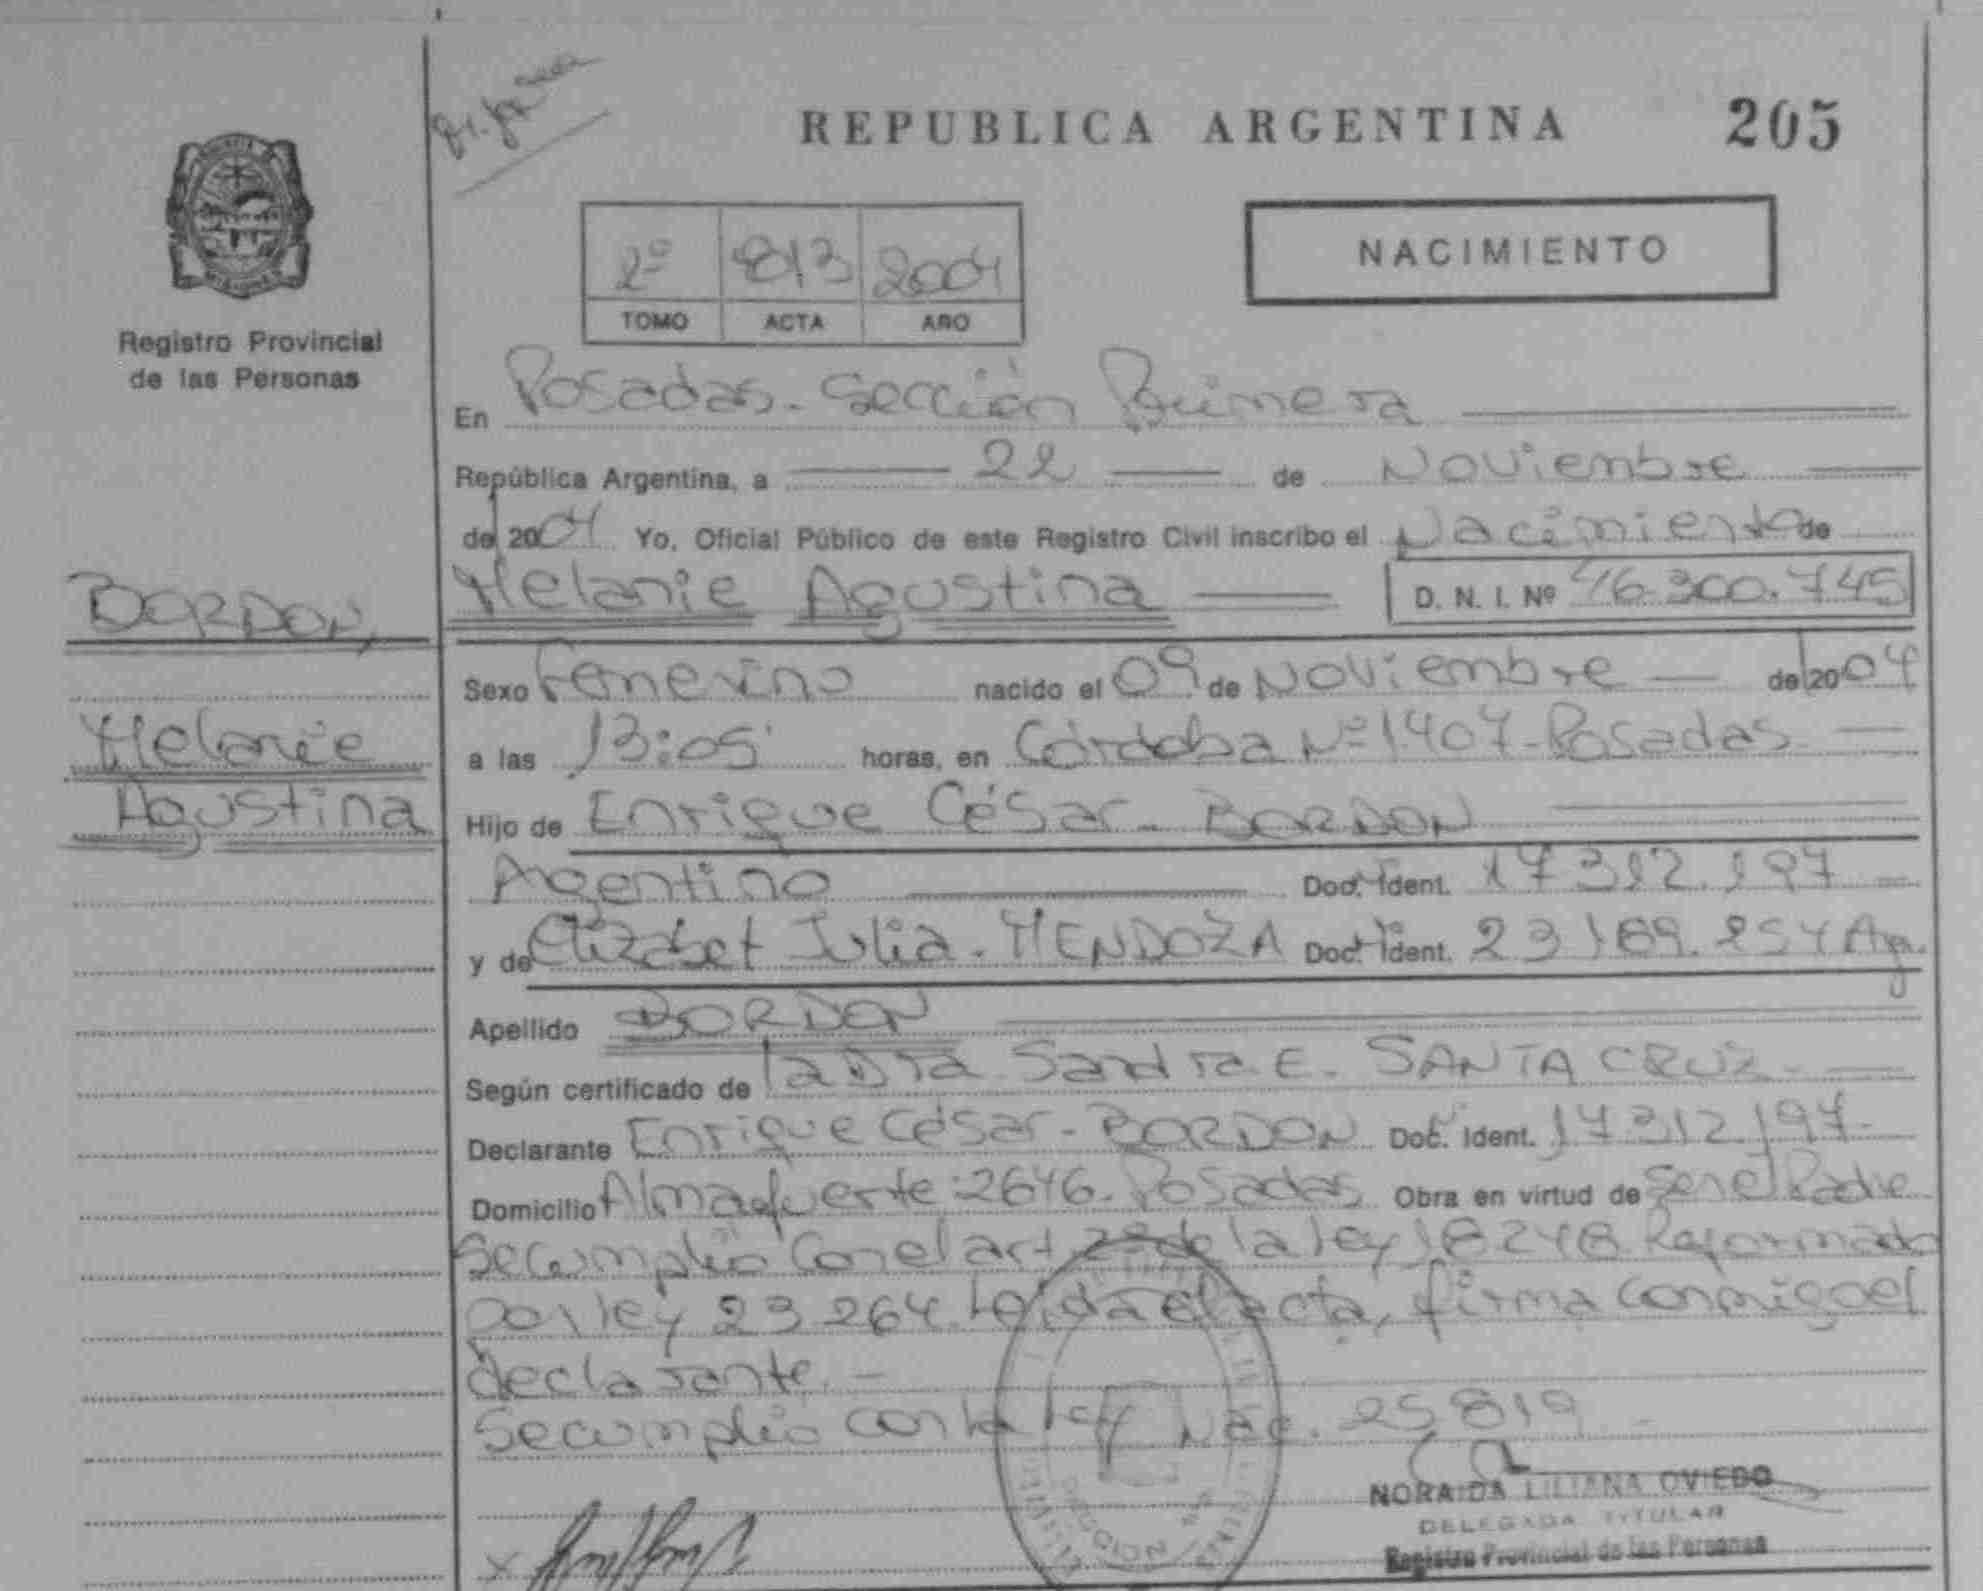 REPUBLICA ARGENTINA 205
NACIMIENTO
2º 813 2004
TOMO ACTA AÑO
Registro Provincial
de las Personas
En Posadas. Sección Primera
República Argentina, a 22 de Noviembre
de 2004 Yo, Oficial Público de este Registro Civil inscribo el Nacimiento de
Melanie Agustina D. N. I. Nº 46.300.745
BORDON,
Melanie
Agustina
Sexo Femenino nacido el 09 de Noviembre de 2004
a las 13:05 horas, en Córdoba Nº 1407-Posadas
Hijo de Enrique César - BORDON
Argentino Doc. Ident. 17 312.197
y de Elizabet Julia - MENDOZA Doc. Ident. 23 189.254 Ag.
Apellido BORDON
Según certificado de la Dra Sandra E. SANTA CRUZ
Declarante Enrique César - BORDON Doc. Ident. 17 312.197-
Domicilio Almafuerte 2646- Posadas Obra en virtud de ser el Padre
Se cumplió con el art. 2º de la ley 18248 Reformado
por ley 23 264. Leída el acta, firma conmigo el
declarante. -
Se cumplió con la ley Nac. 25 819
NORAIDA LILIANA OVIEDO
DELEGADA TITULAR
Registro Provincial de las Personas